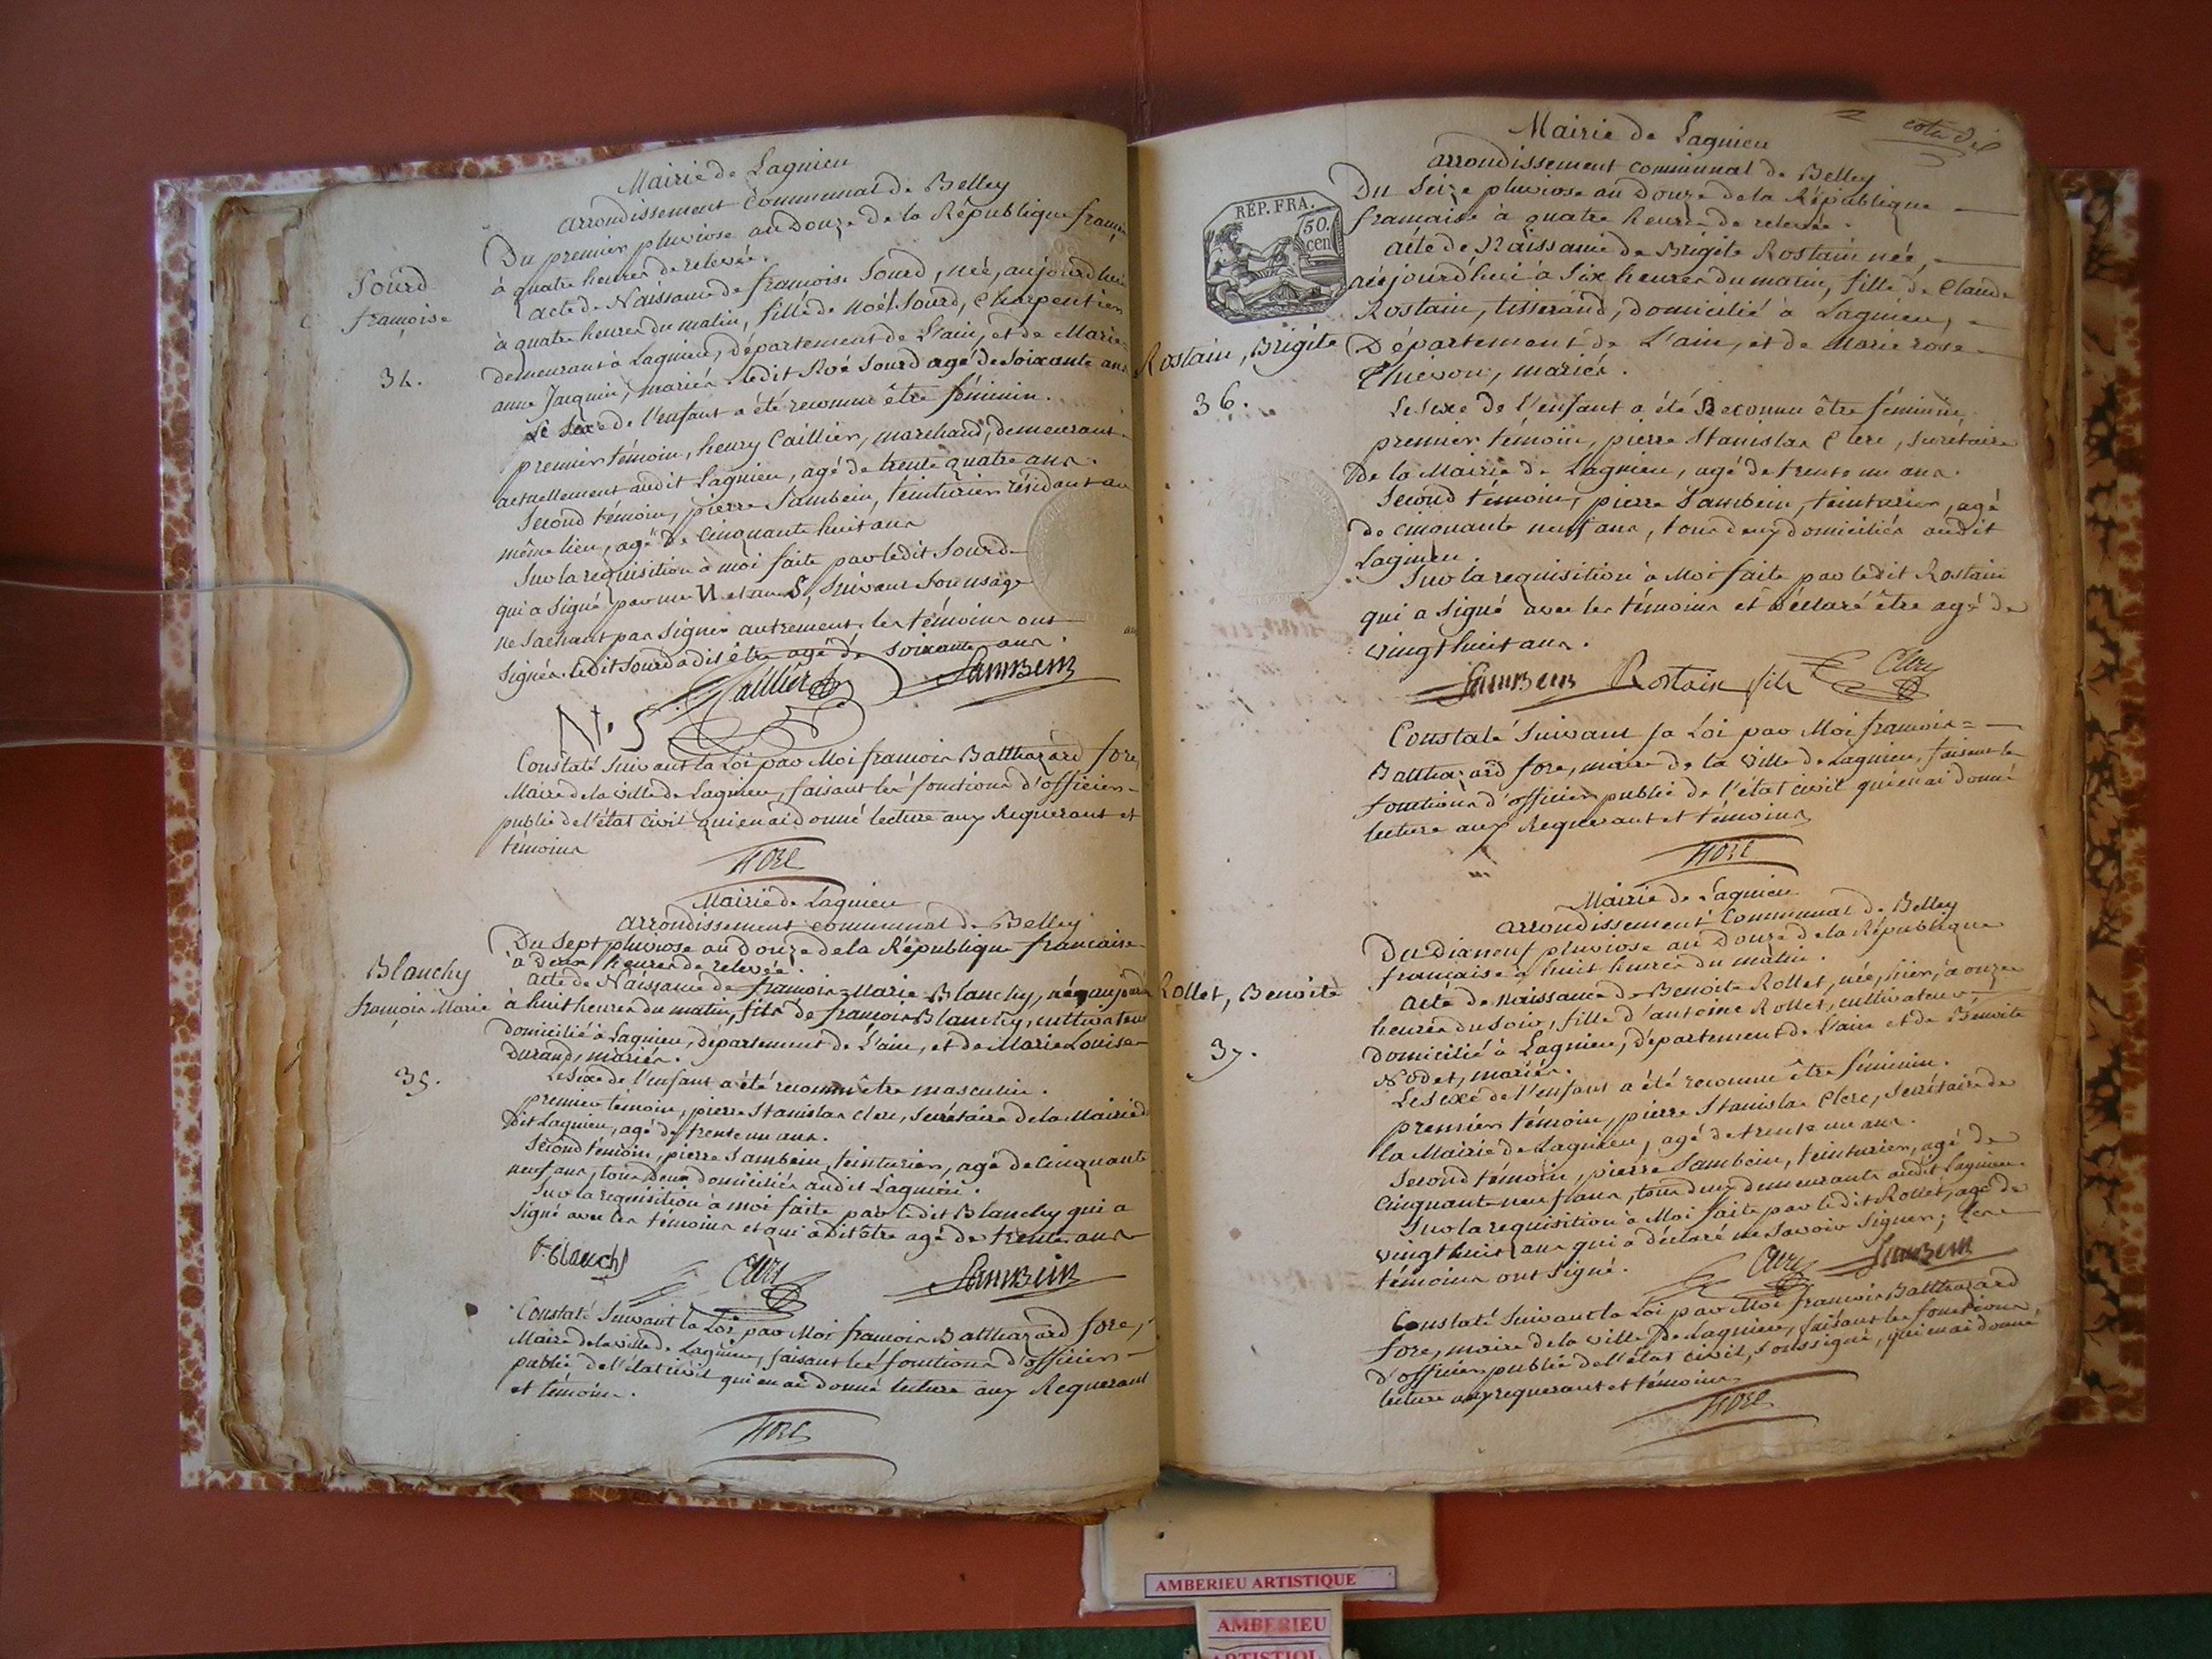 Mairie de Lagnieu
arrondissement communal de Belley
Du premier pluviose an Douze de la République française
à quatre heures de relevée.
Sourd
françoise
34.
acte de Naissance de françoise Sourd, née, aujourd'hui
à quatre heures du matin, fille de Noël Sourd, Charpentier
demeurant à Lagnieu, département de L'ain, et de Marie
anne Jacquin, mariés. ledit Noé Sourd agé de soixante ans
Le sexe de l'enfant a été reconnu être féminin.
premier témoin, henry Caillier, marchand, demeurant
actuellement audit Lagnieu, agé de trente quatre ans.
Second témoin, pierre Sambein, teinturier résidant au
même lieu, agé de Cinquante huit ans
Sur la requisition à moi faite par ledit Sourd
qui a Signé par un N et un S, Suivant Son usage
ne Sachant pas Signer autrement. les témoins ont
Signés. ledit Sourd a dit être agé de soixante ans.
Caillier Sambein
N. S
Constaté Suivant la Loi par Moi françois Balthazard fore,
Maire de la ville de Lagnieu, faisant les fonctions d'officier
public de l'état civil qui en ai donné lecture aux Requerant et
témoins
fore
Mairie de Lagnieu
arrondissement communal de Belley
Du Sept pluviose an Douze de la République francaise
à Deux heures de relevée.
Blanchy
françois Marie
35.
acte de Naissance de françois-Marie Blanchy, né, aujourd
à huit heures du matin, fils de françois Blanchy, cultivateur
domicilié à Lagnieu, département de L'ain, et de Marie Louise
Durand, mariés.
Le Sexe de l'enfant a été reconnu être masculin.
premier témoin, pierre Stanislas Clerc, Secrétaire de la Mairie du
Dit Lagnieu, agé de trente un ans.
Second témoin, pierre Sambein, teinturier, agé de Cinquante
neuf ans, tous deux domiciliés audit Lagnieu.
Sur la requisition à moi faite par ledit Blanchy qui a
Signé avec les témoins et qui a dit être agé de trente ans
f. Blanchy Clerc Sambein
Constaté Suivant la Loi par Moi françois Balthazard fore,
Maire de la ville de Lagnieu, faisant les fonctions d'officier
public de l'état civil qui en ai donné lecture aux Requerant
et témoins.
fore
cote dix
Mairie de Lagnieu
arrondissement communal de Belley
RÉP. FRA.
50.
cen
Du Seize pluviose an Douze de la République
francaise à quatre heures de relevée.
Rostain, Brigite
36.
acte de Naissance de Brigite Rostain née,
aujourd'hui à Six heures du matin, fille de Claude
Rostain, tisserand, domicilié à Lagnieu,
Département de L'ain, et de Marie rose
mariés.
Le Sexe de l'enfant a été Reconnu être féminin
premier témoin, pierre Stanislas Clerc, Secrétaire
De la Mairie de Lagnieu, agé de trente un ans.
Second témoin, pierre Sambein, teinturier, agé
de cinquante neuf ans, tous deux domiciliés audit
Lagnieu.
Sur la requisition à Moi faite par ledit Rostain
qui a Signé avec les témoins et déclaré être agé de
vingt huit ans.
Sambein Rostain fils Clerc
Constaté Suivant la Loi par Moi francois
Balthazard fore, maire de la ville de Lagnieu, faisant les
fonctions d'officier public de l'état civil qui en ai donné
lecture aux Requerant et témoins
fore
Mairie de Lagnieu
arrondissement Communal de Belley
Du Dix neuf pluviose an Douze de la République
française à huit heures du matin.
Rollet, Benoite
37.
acte de naissance de Benoite Rollet, née, hier, à onze
heures du Soir, fille d'antoine Rollet, cultivateur,
domicilié à Lagnieu, département de L'ain et de Benoite
Nodet, mariés.
Le Sexe de l'enfant a été reconnu être féminin.
premier témoin, pierre Stanislas Clerc, Secrétaire de
la Mairie de Lagnieu, agé de trente un ans.
Second témoin, pierre Sambein, teinturier, agé de
Cinquante neuf ans, tous deux demeurants audit Lagnieu.
Sur la requisition à Moi faite par ledit Rollet, agé de
vingt huit ans qui a déclaré ne Savoir Signer; les
témoins ont Signé.
Clerc Sambein
Constaté Suivant la Loi par Moi francois Balthazard
fore, maire de la ville de Lagnieu, faisant les fonctions
d'officier public de l'état civil, soussigné, qui en ai donné
lecture aux requerant et témoins
fore
AMBERIEU ARTISTIQUE
AMBERIEU
ARTISTIQU